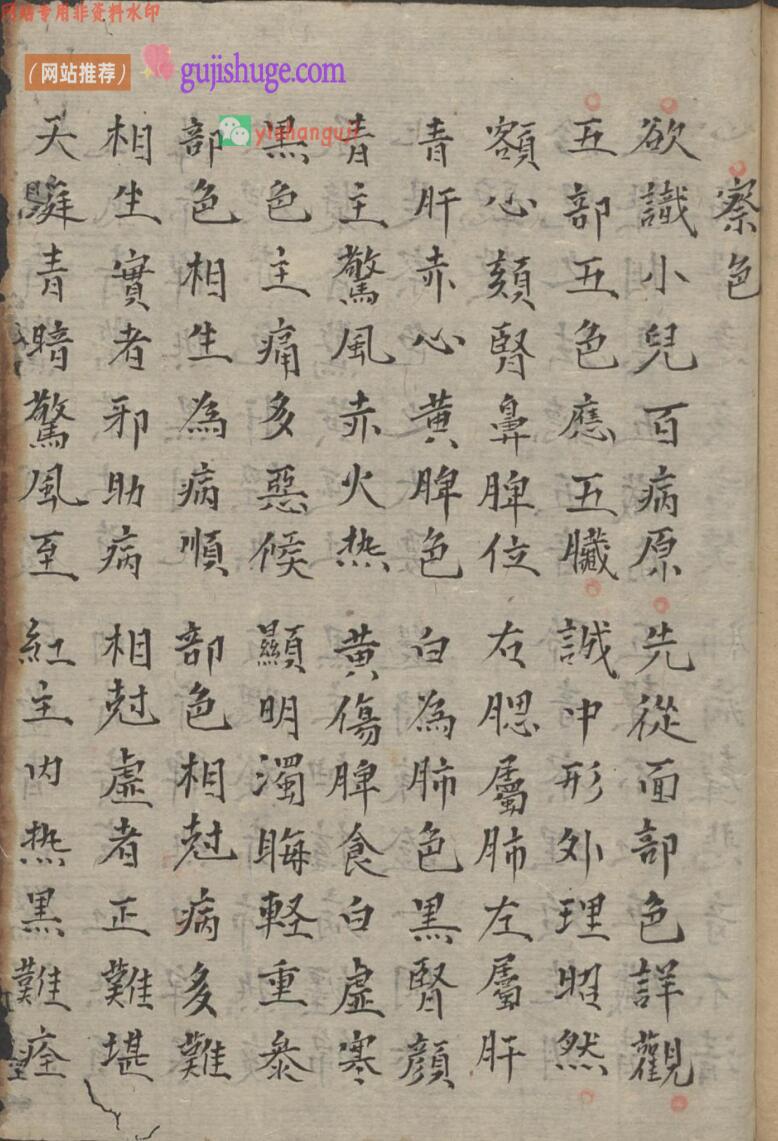 网站专用非资料水印
（网站推荐） gujishuge.com
察色
欲識小兒百病原 先從面部色詳觀
五部五色應五臟 誠中形外理昭然
額心頦腎鼻脾位 右腮屬肺左屬肝
青肝赤心黃脾色 白為肺色黑腎顏
青主驚風赤火热 黃傷脾食白虛寒
黑色主痛多惡候 顯明濁晦輕重叅
部色相生為病順 部色相尅病多難
相生實者邪助病 相尅虛者正難堪
天庭青暗驚風至 紅主内热黑難痊